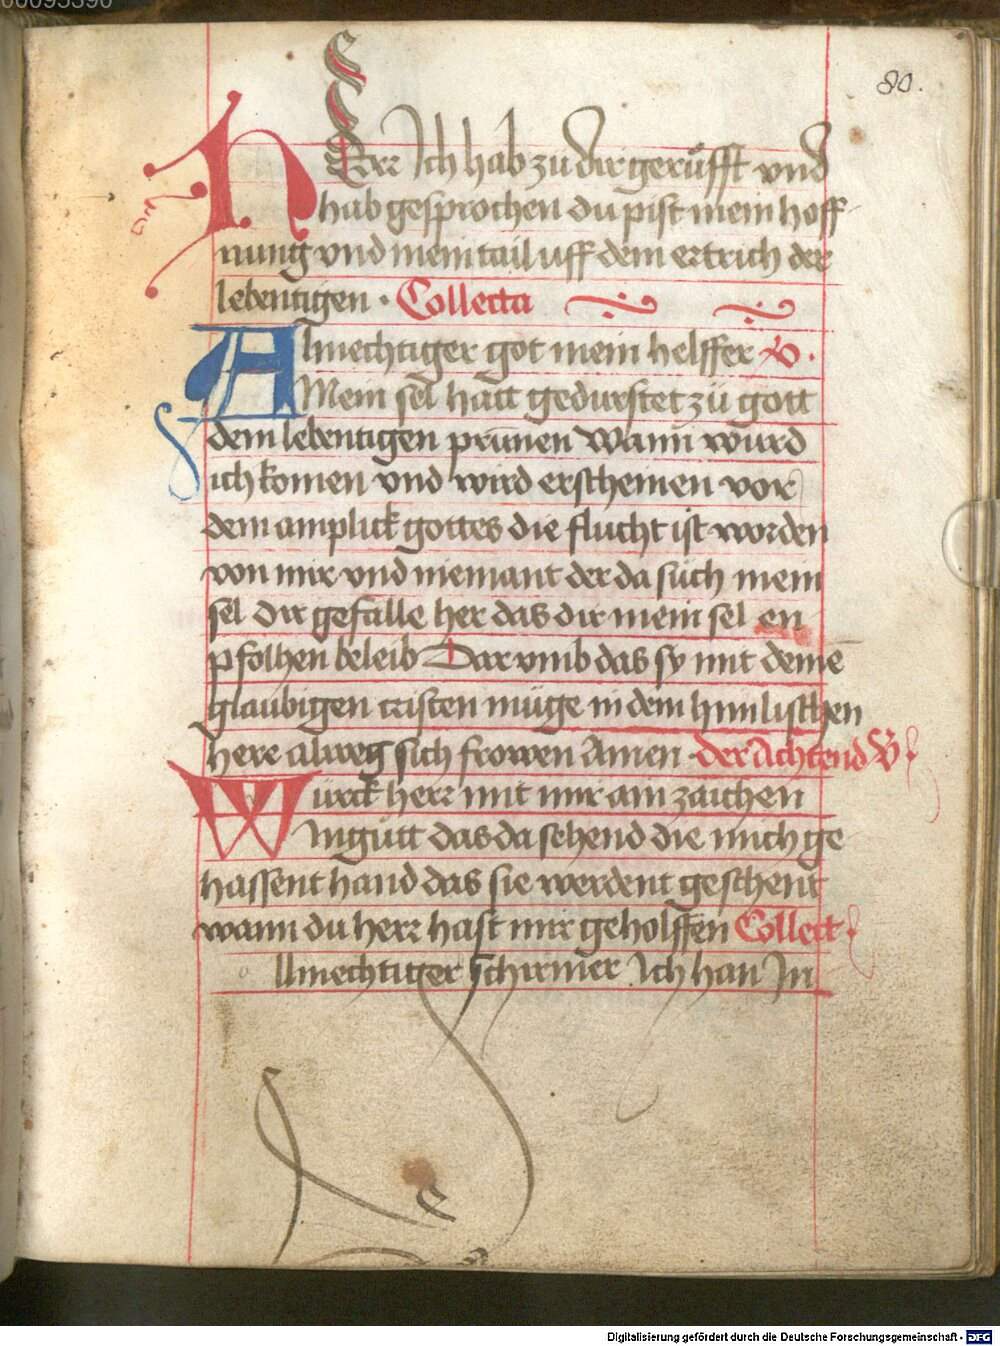 00095390
80.
HErr Ich hab zů dir gerüfft vnd
hab gesprochen du pist mein hoff
nung vnd mein tail uff dem ertrich der
lebentigen . Collecta
Almechtiger got mein helffer V.
Mein sel hatt gedurstet zů gott
dem lebentigen prunen Wann wurd
ich komen vnd wird erscheinen vor
dem amplick gottes die flucht ist worden
von mir vnd niemant der da sůch mein
sel Dir gefalle her das dir mein sel en
pfolhen beleib Dar vmb das sy mit deinē
glaubigen cristen muge in dem himlischen
here alweg sich frowen Amen der Achtend V
Würck herr mit mir ain zaichen
In gutt das da sehend die mich ge
hassent hand das sie werdent geschent
wann du herr hast mir geholffen Collect
llmechtiger schirmer Ich han In
Digitalisierung gefördert durch die Deutsche Forschungsgemeinschaft - DFG